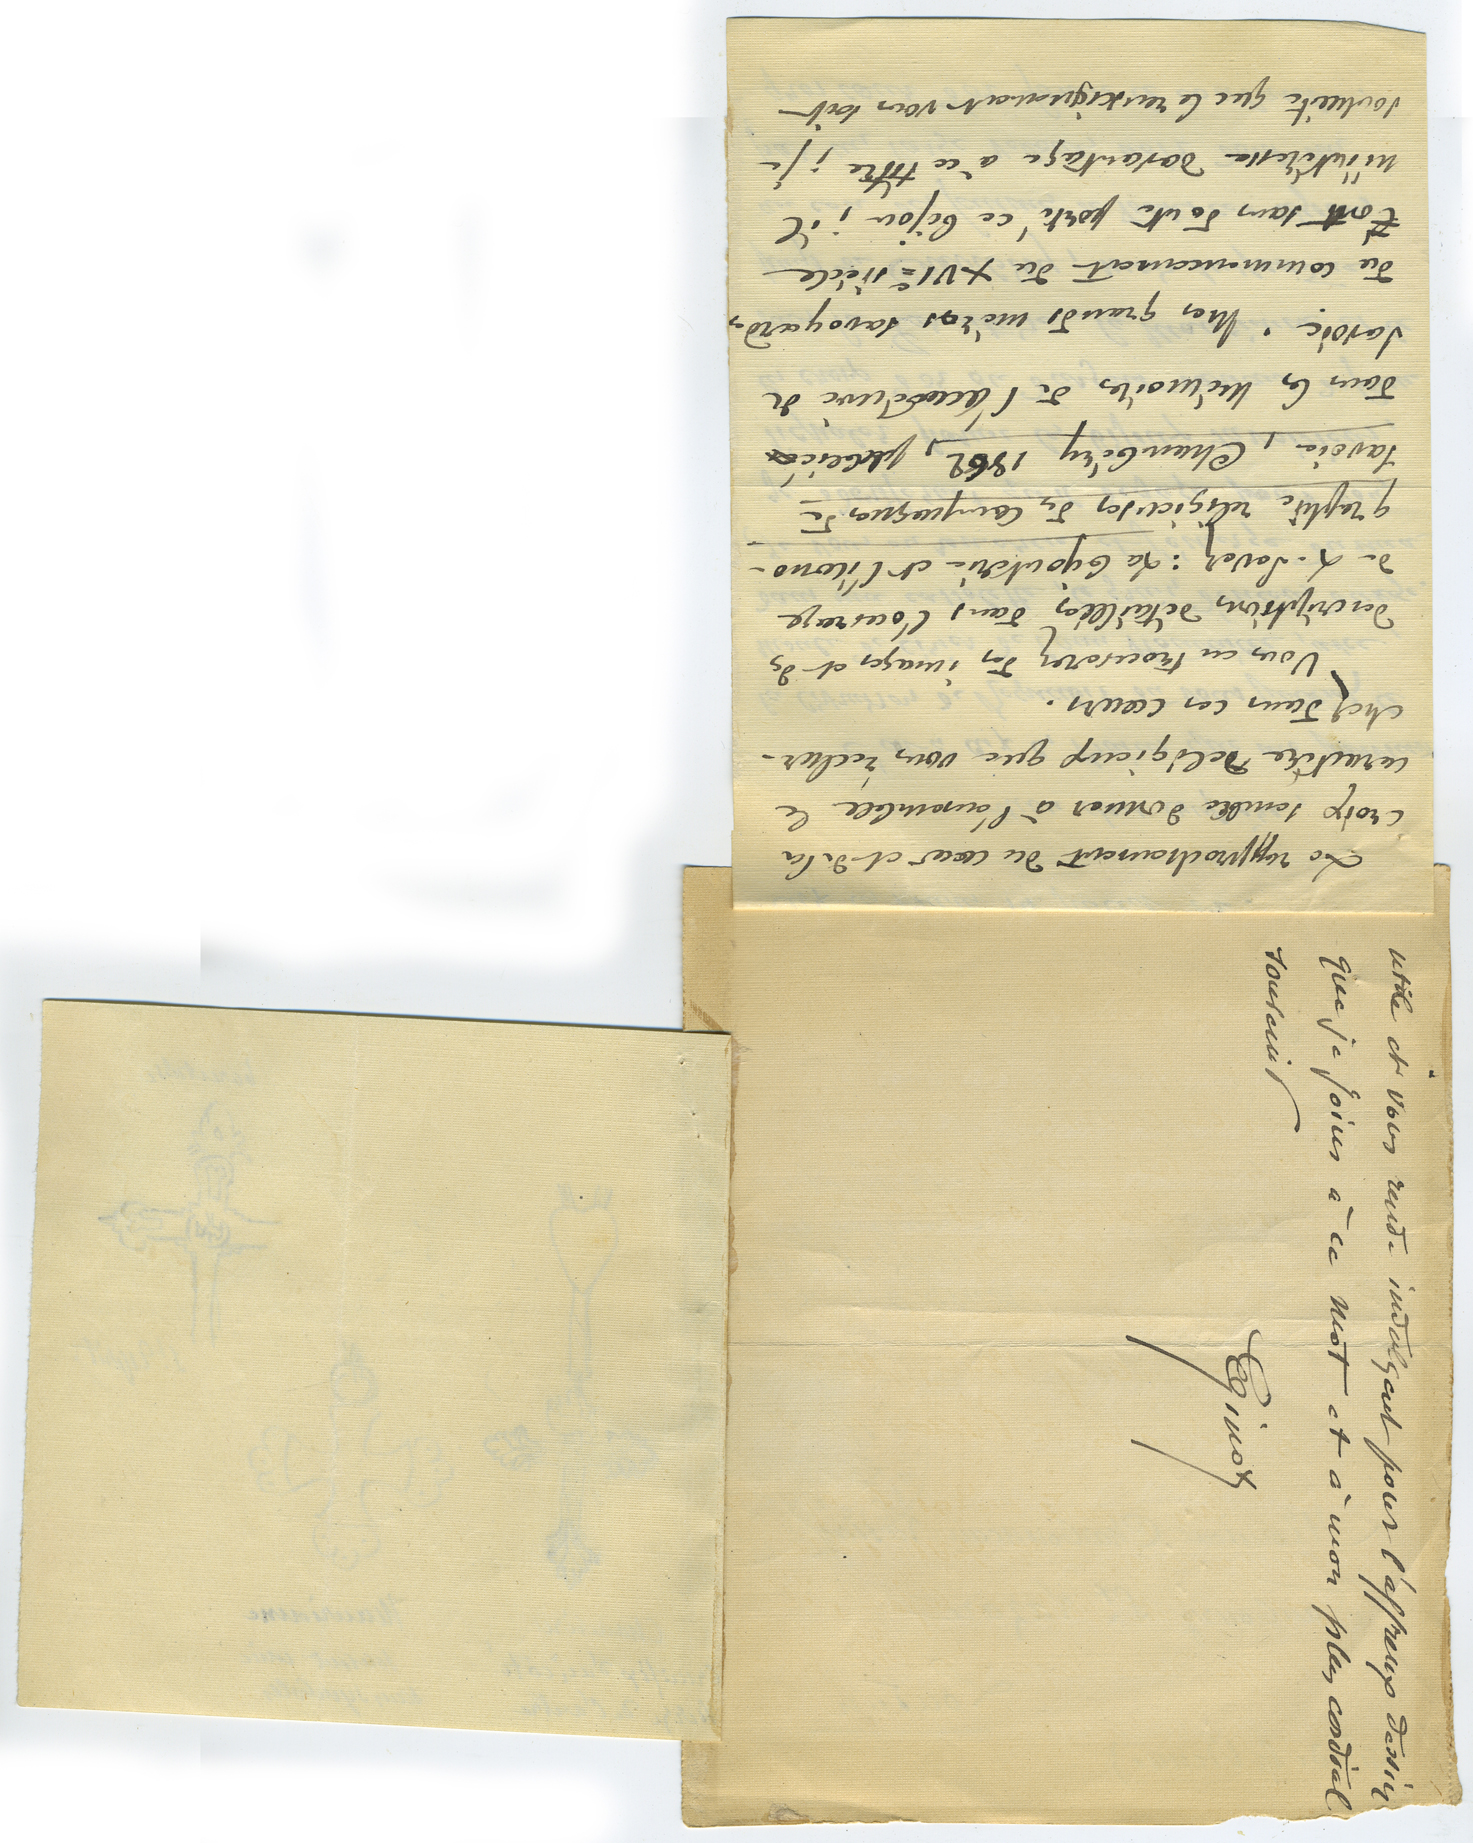 Le rapprochement du cœur et de la
croix semble donner à l'ensemble le
caractère religieux que vous recher-
chez dans ces cœurs.
Vous en trouverez des images et des
descriptions détaillées dans l'ouvrage
de : La bijouterie et l'icono-
graphie religieuses des campagnes de
Savoie, Chambéry 1962, publié
dans les Mémoires de l'Académie de
Savoie. Mes grands mères savoyardes
du commencement du XVIe siècle
ont sans doute porté ce bijou ; il
m'intéresse davantage à ce titre ; je
souhaite que le renseignement vous soit
utile et vous rende indulgent pour l'affreux dessin
que je joins à ce mot et à mon plus cordial
souvenir